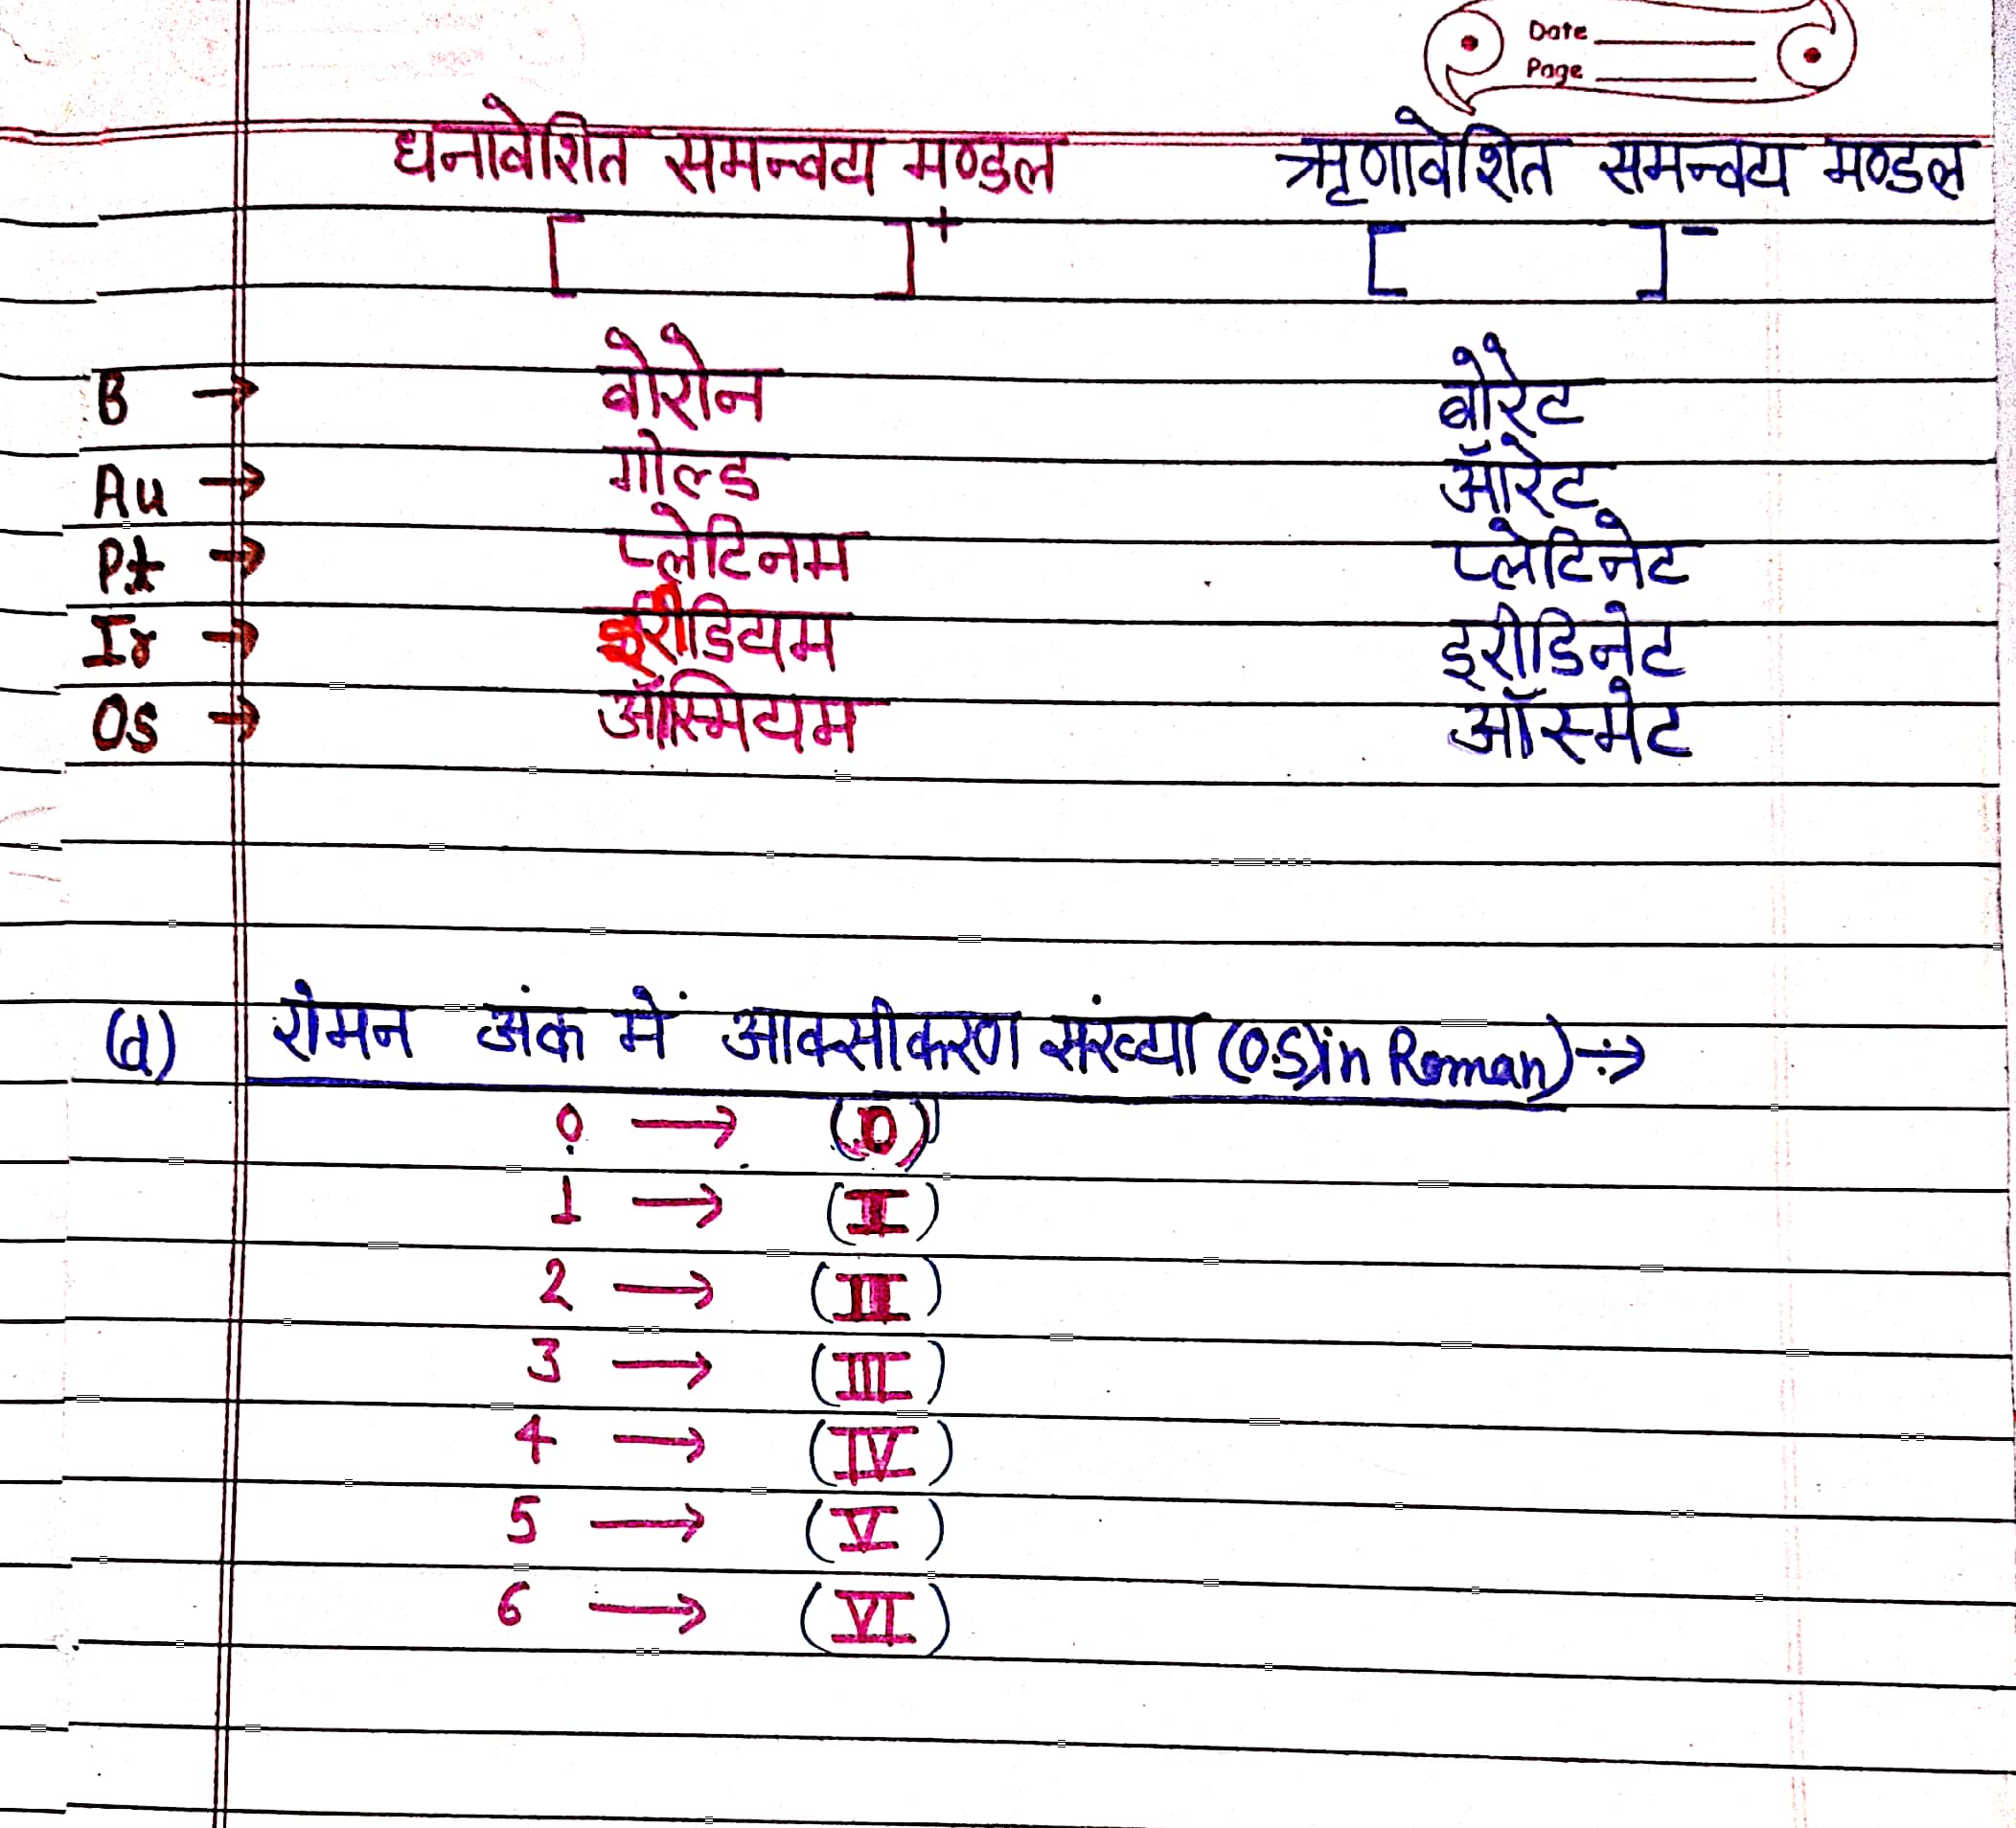 Date
Page
धनावेशित समन्वय मण्डल ऋणावेशित समन्वय मण्डल
[ ]+ [ ]-
B → बोरोन बोरेट
Au → गोल्ड ऑरेट
Pt → प्लेटिनम प्लेटिनेट
Ir → इरीडियम इरीडिनेट
Os → ऑस्मियम ऑस्मेट
(d) रोमन अंक में आक्सीकरण संख्या (O.S) in Roman) →
0 → (0)
1 → (I)
2 → (II)
3 → (III)
4 → (IV)
5 → (V)
6 → (VI)